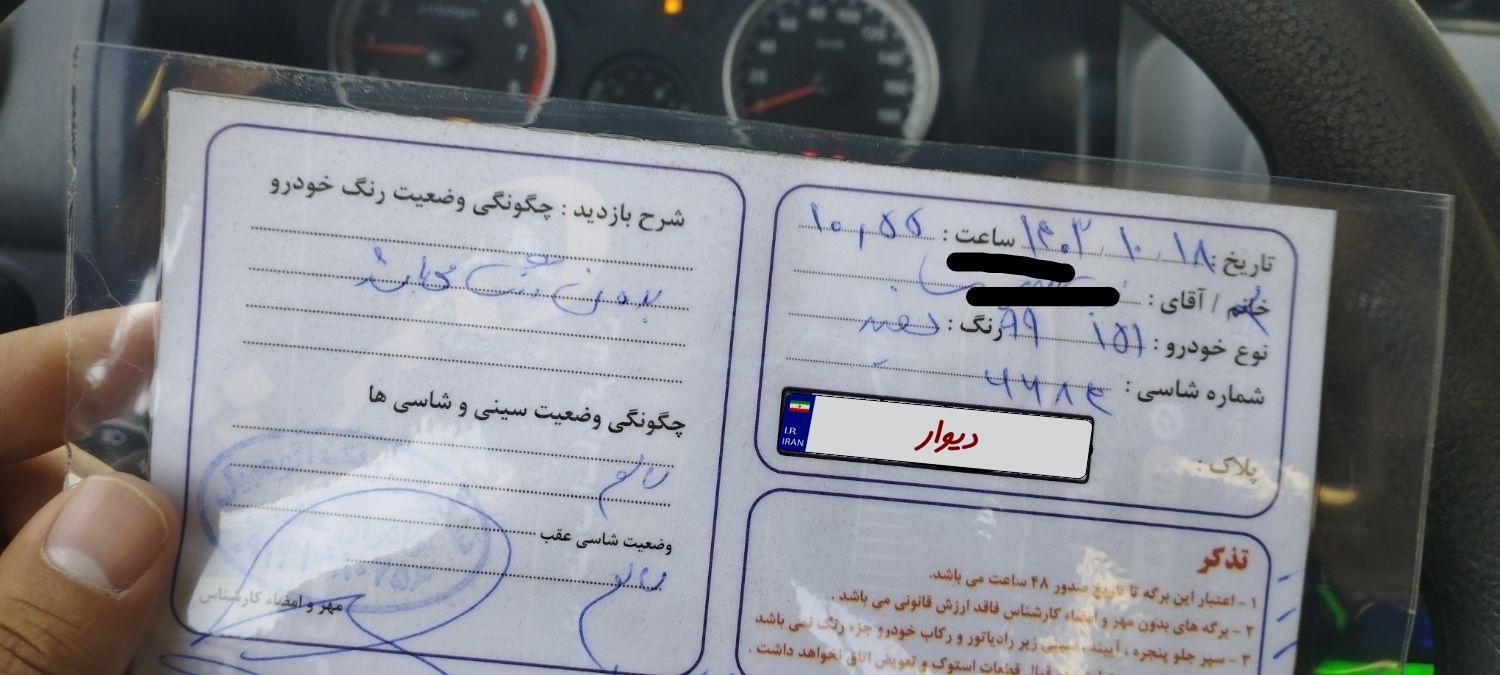 تاریخ : ۱۴۰۳ / ۱۰ / ۱۸ ساعت : ۱۰,۵۵
خانم / آقای :
نوع خودرو : ۱۵۱ ۹۹ رنگ : سفید
شماره شاسی :
I.R. IRAN دیوار
پلاک :
تذکر
۱ - اعتبار این برگه تا تاریخ صدور ۴۸ ساعت می باشد.
۲ - برگه های بدون مهر و امضاء کارشناس فاقد ارزش قانونی می باشد .
۳ - سپر جلو پنجره ، آیینه ، سینی زیر رادیاتور و رکاب خودرو جزء رنگ نمی باشد
قبال قطعات استوک و تعویض اتاق نخواهد داشت .
شرح بازدید : چگونگی وضعیت رنگ خودرو
بدون رنگ می باشد
چگونگی وضعیت سینی و شاسی ها
سالم
وضعیت شاسی عقب
سالم
مهر و امضاء کارشناس